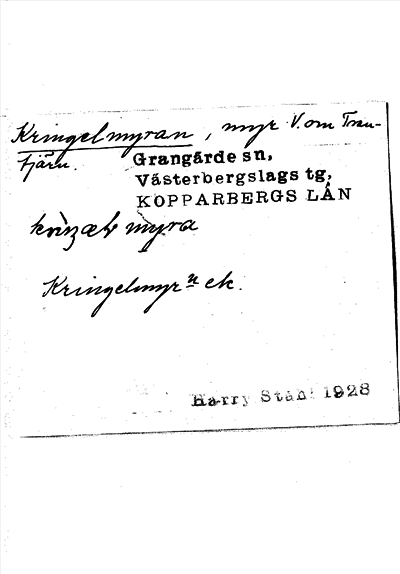 Kringelmyran, myr V. om Tran-
tjärn.
Grangärde sn,
Västerbergslags tg,
KOPPARBERGS LÄN
myra
Kringelmyrn ek.
Harry Ståhl 1928